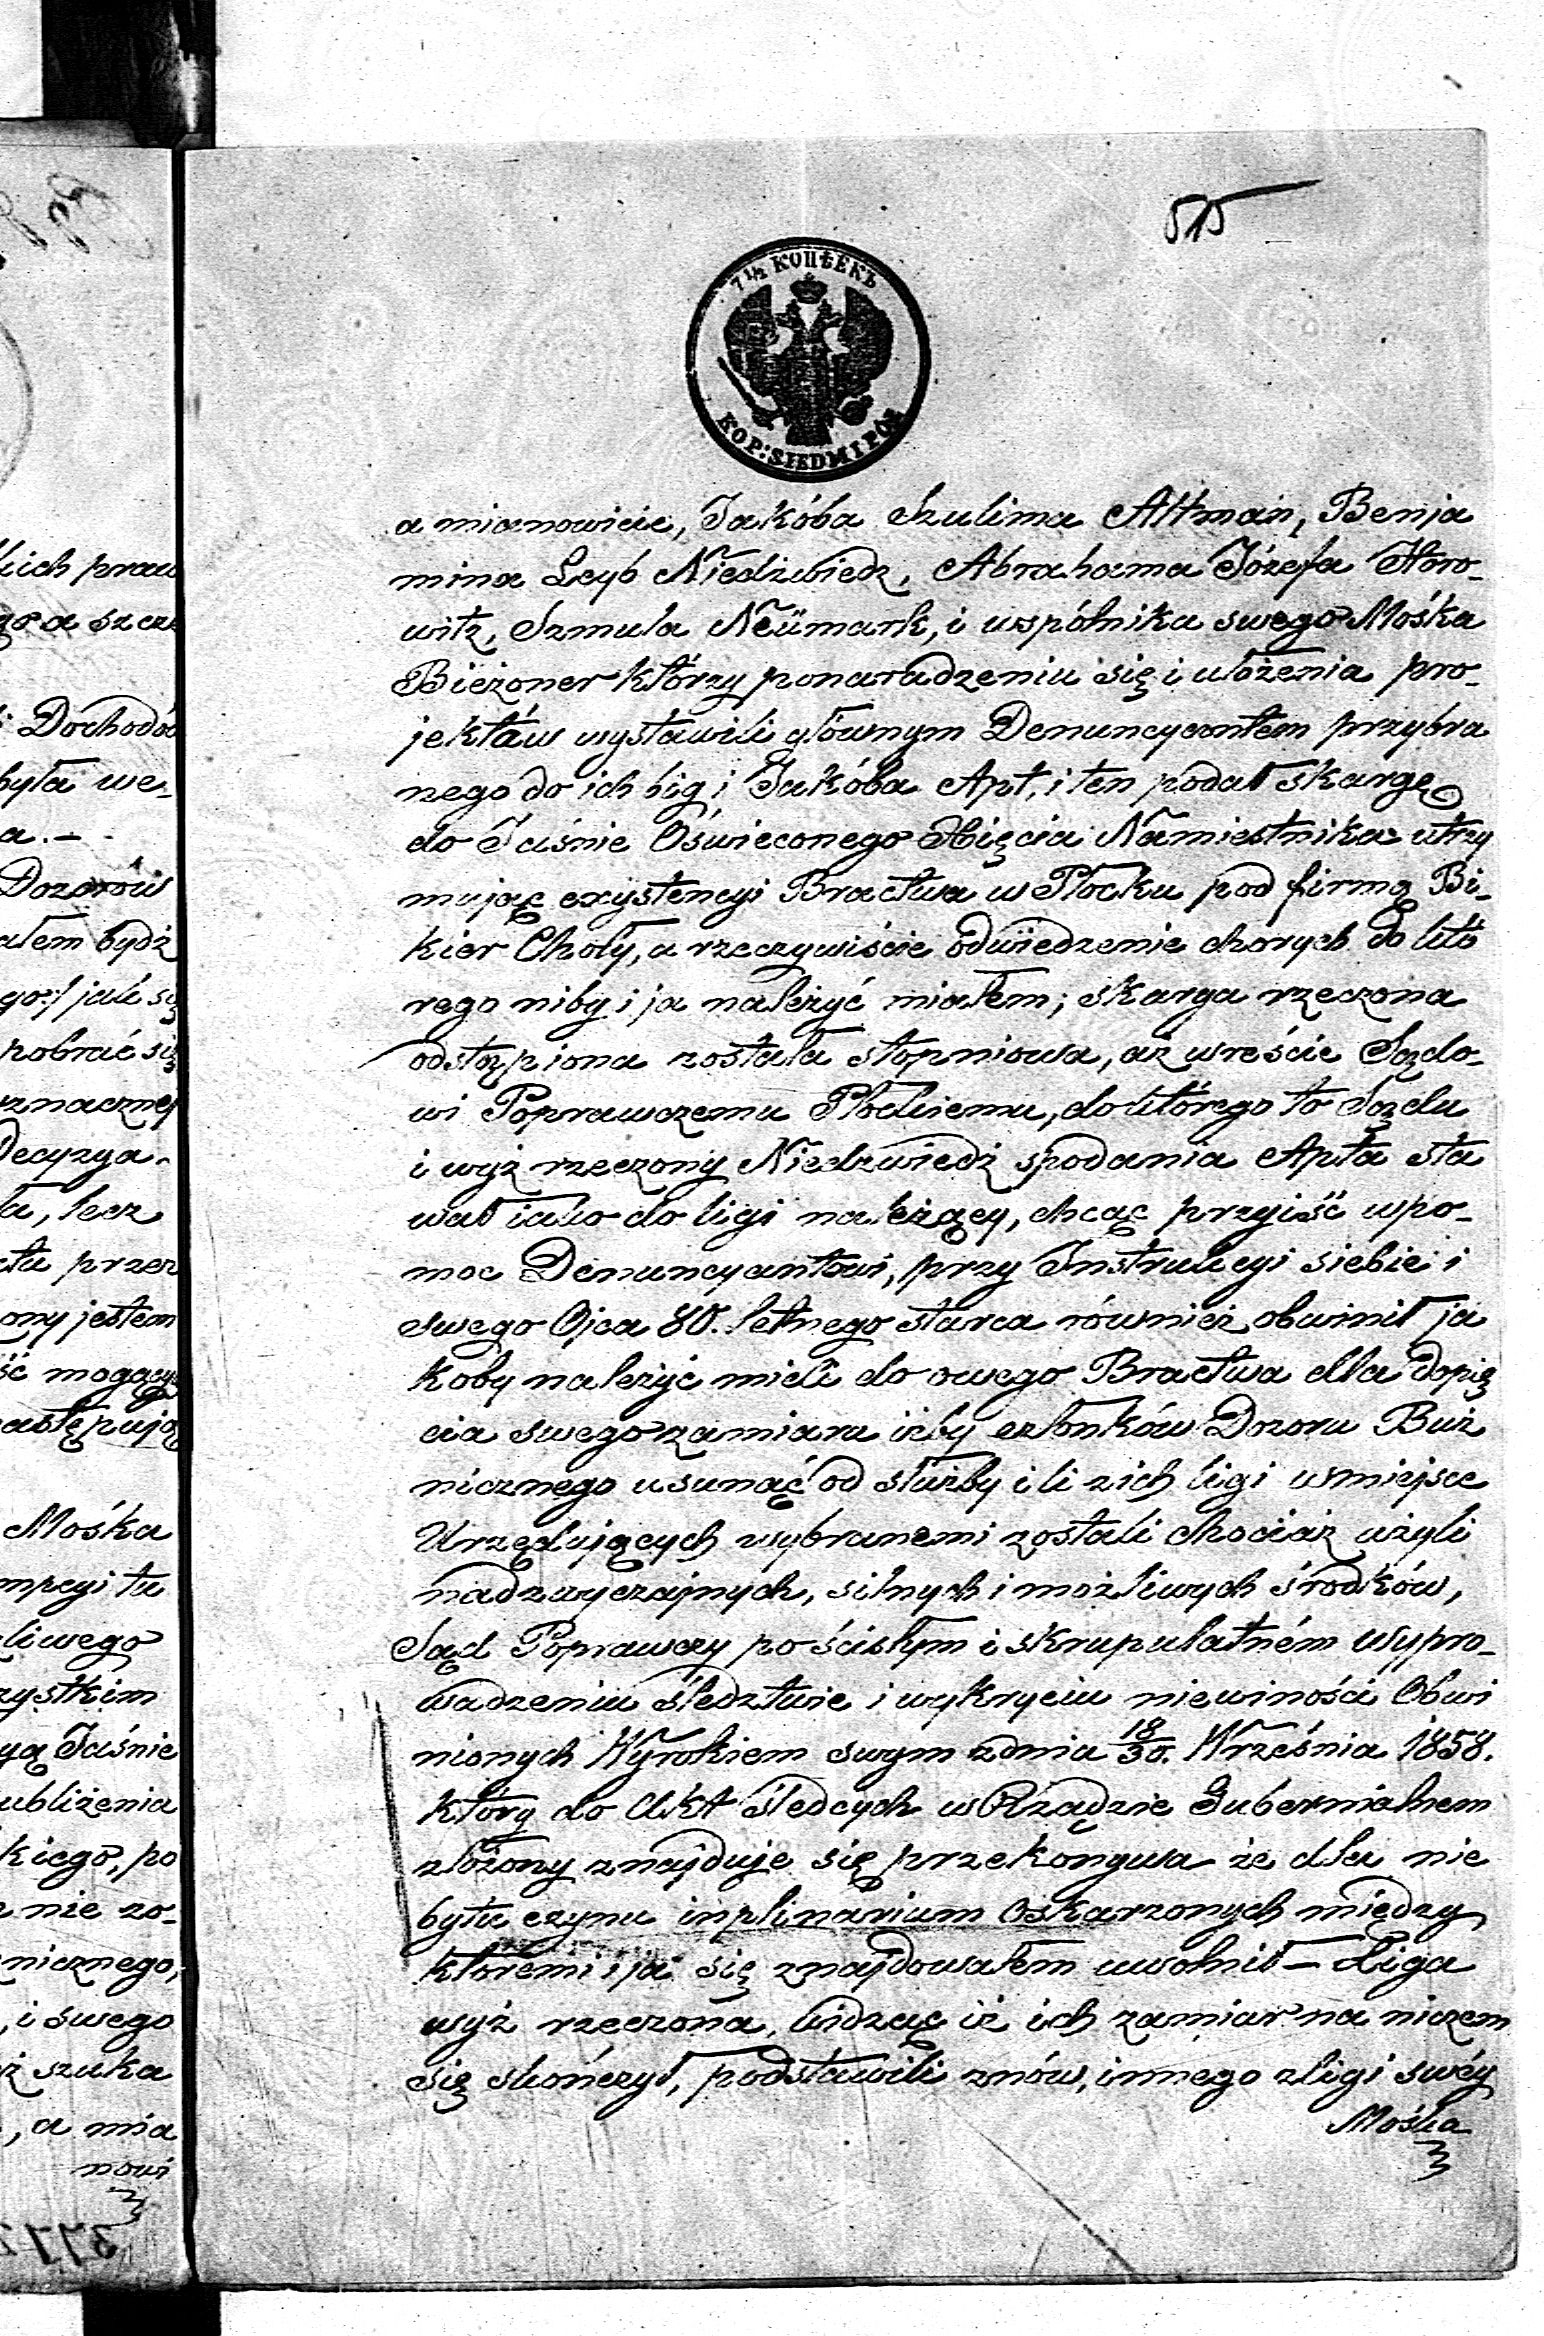 515
7½ КОПѢЕКЪ
KOP: SIEDM I PÓŁ
a mianowicie, Jakóba Szulima Altman, Benja
mina Leyb Niedzwiedz, Abrahama Józefa Horo-
witz, Szmula Neümark, i wspólnika swego Mośka
Bieżoner którzy ponaradzeniu się i ułożenia pro-
jektów wystawili głównym Denuncyantem przybra
nego do ich ligi Jakóba Apt, i ten podał skargę
do Jaśnie Oświeconego Xięcia Namiestnika utrzy
mując exystencyi Bractwa w Płocku pod firmą Bi-
kier Choły, a rzeczywiście odwiedzenie chorych do któ
rego niby i ja należyć miałem; skarga rzeczona
odstąpiona została stopniowa, aż wreście Sądo-
wi Poprawczemu Płockiemu, do którego to Sądu
i wyż rzeczony Niedzwiedź spodania Apta sta
wał iako do ligi należący, chcąc przyiść wpo-
moc Denuncyantowi, przy Instrukcyi siebie i
swego Ojca 80. letnego starca również obwinił ja
koby należyć mieli do owego Bractwa dla dopię
cia swego zamiaru iżby członków Dozoru Buż
nicznego usunąć od służby i li z ich ligi wmiejsce
Urzędujących wybranemi zostali chociaż użyli
nadzwyczajnych, silnych i możliwych środków,
Sąd Poprawczy po ścisłym i skrupulatném wypro-
wadzeniu śledztwie i wykryciu niewiności Obwi
nionych Wyrokiem swym zdnia 18/30. Września 1858.
który do Akt śledcych w Rządzie Gubernialnem
złożony znajduje się przekonywa że dla nie
bytu czynu inplinarium oskarzonych między
któremi i ja się znajdowałem uwolnił – Liga
wyż rzeczona, widząc iż ich zamiar na niczem
się skończył, podstawili znów, innego zligi swéy
Mośka
kich praw
go a szcze
i Dochodów
była we-
a. –
Dozorów
ałem bydź
go:/ jak się
pobrać się
znacznej
Decyzya-
ła, lecz
ktu przez
ony jestem
ść mogący
następują
Mośka
mpcyi tu
liwego
zystkim
yą Jaśnie
ubliżenia
kiego, po
nie zo-
nicznego,
, i swego
ż szuka
, a mia
nowi